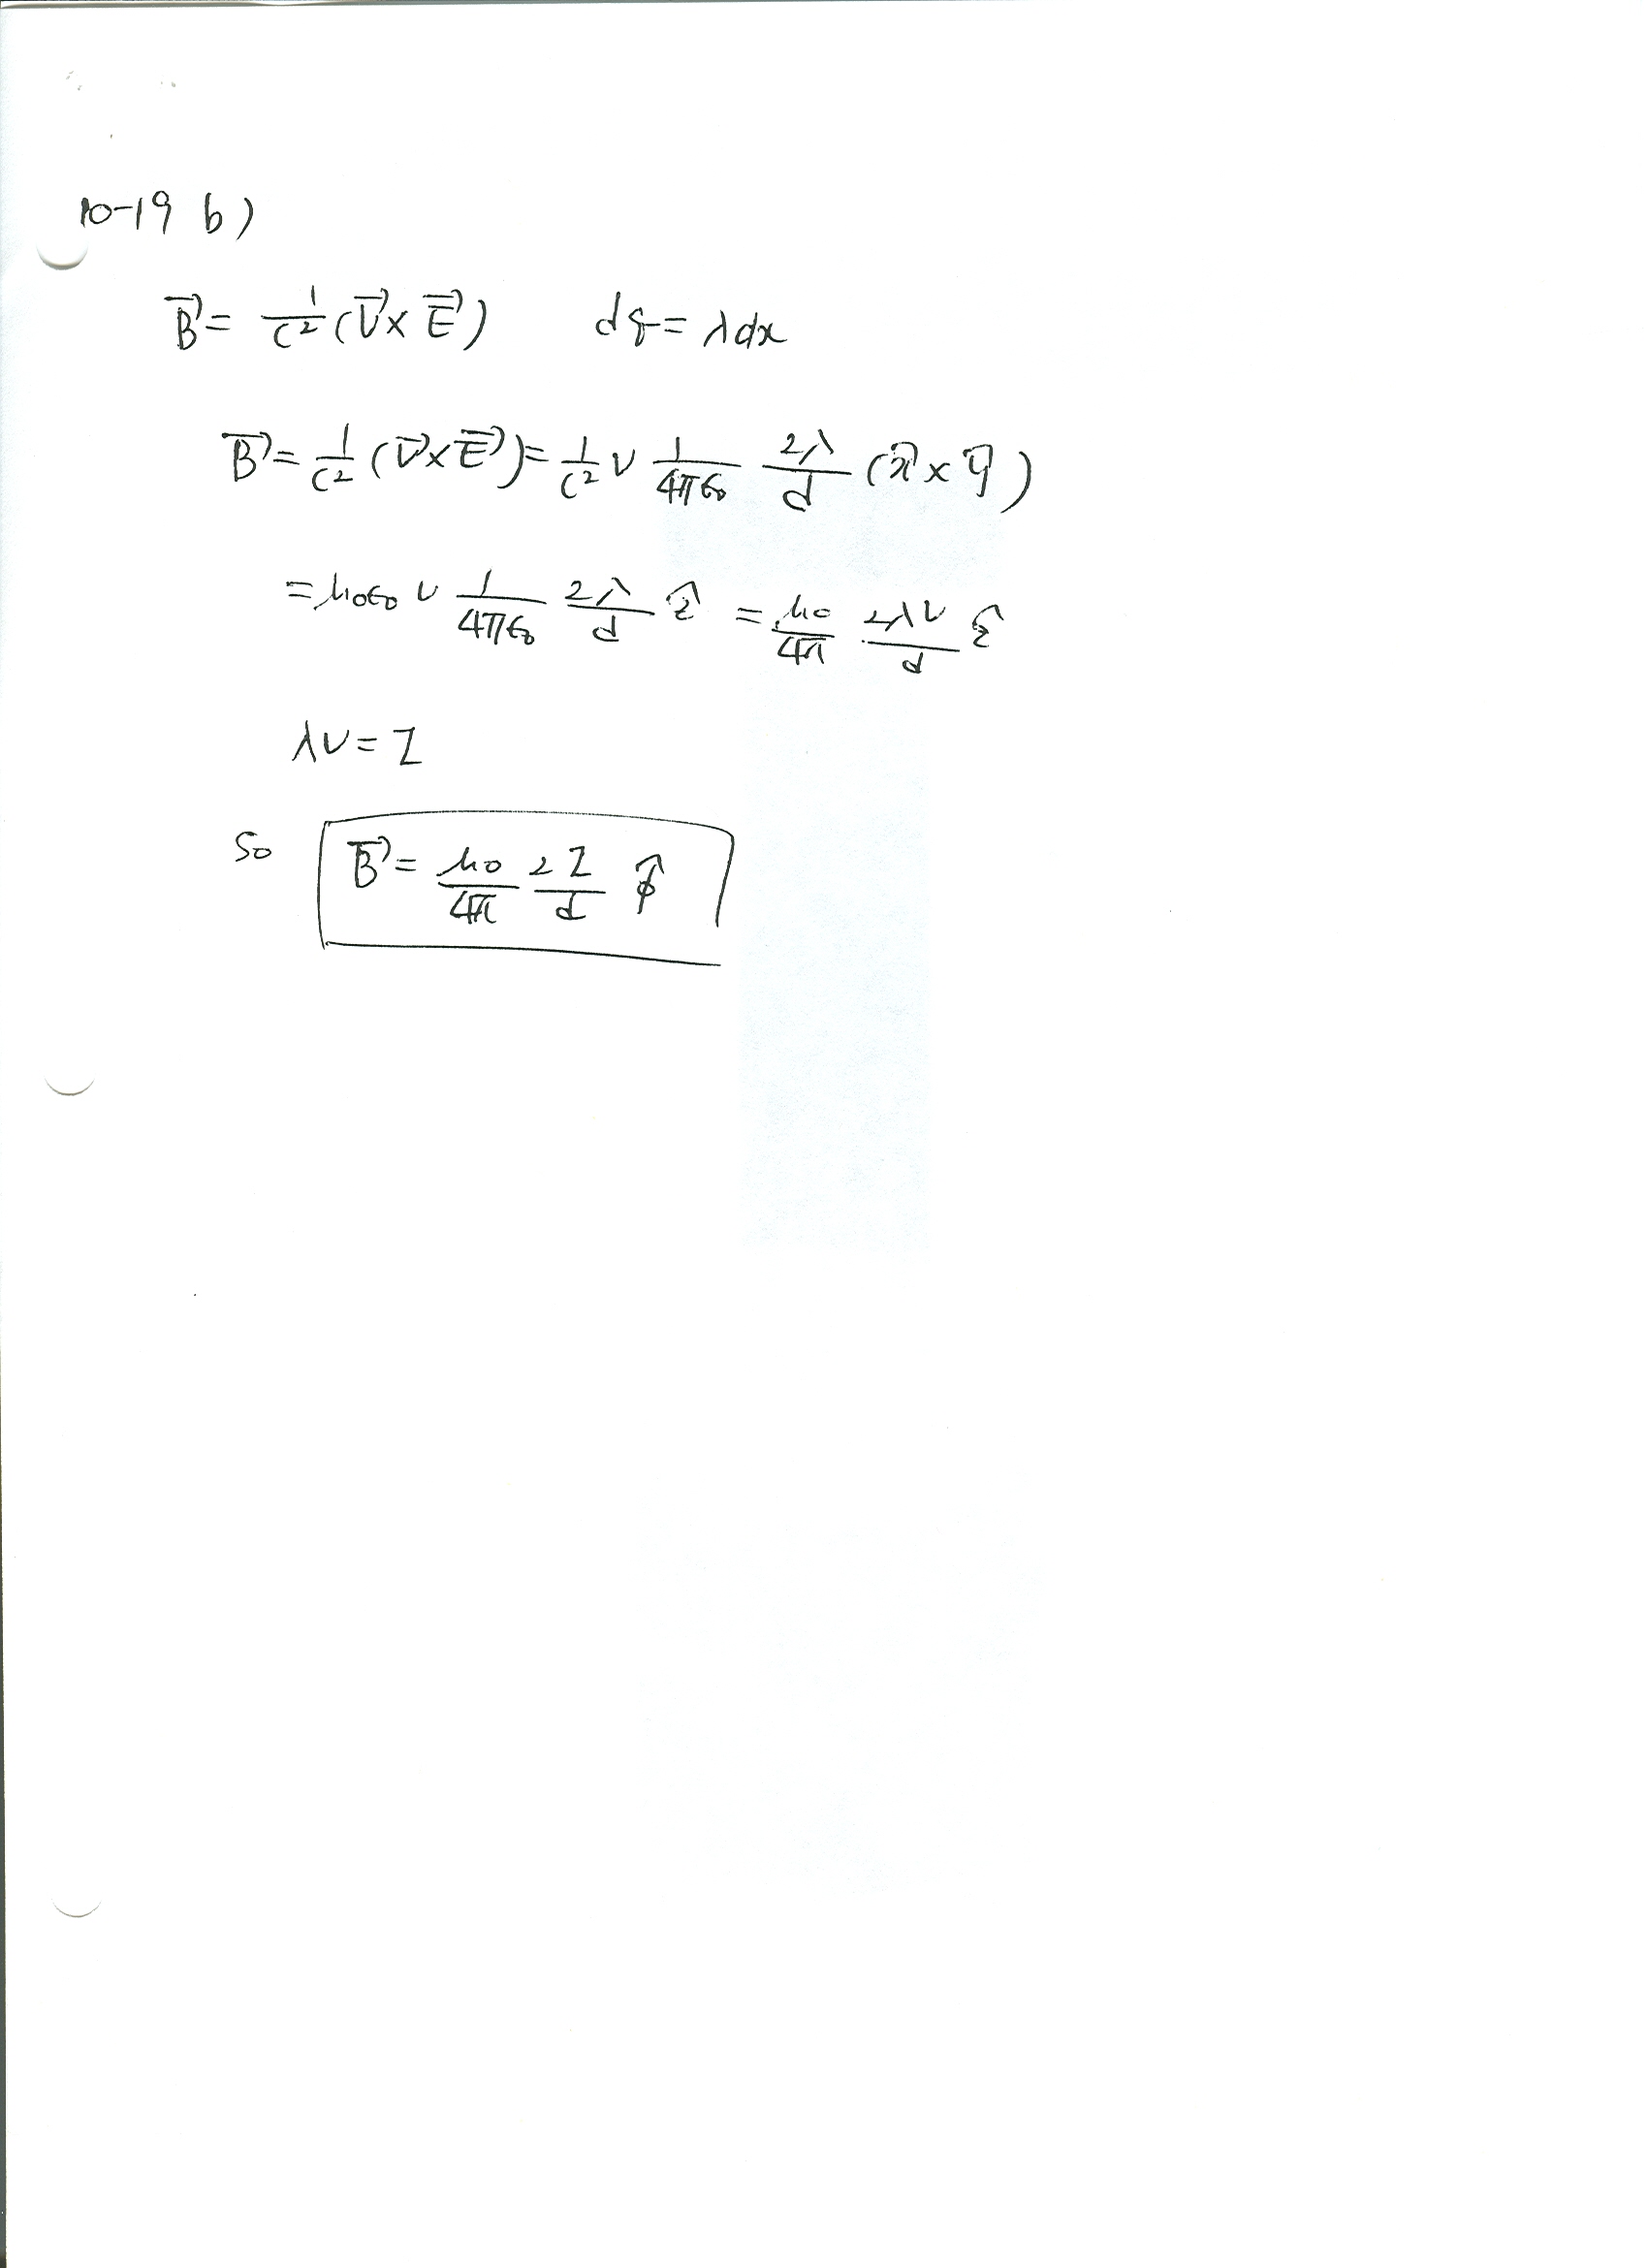 10-19 b)
B⃗ = 1/c² (V⃗ × E⃗) dq = λdx
B⃗ = 1/c² (V⃗ × E⃗) = 1/c² v 1/4πε₀ 2λ/d (x̂ × ŷ)
= μ₀ε₀ v 1/4πε₀ 2λ/d ẑ = μ₀/4π 2λv/d ẑ
λv = I
So B⃗ = μ₀/4π 2I/d φ̂